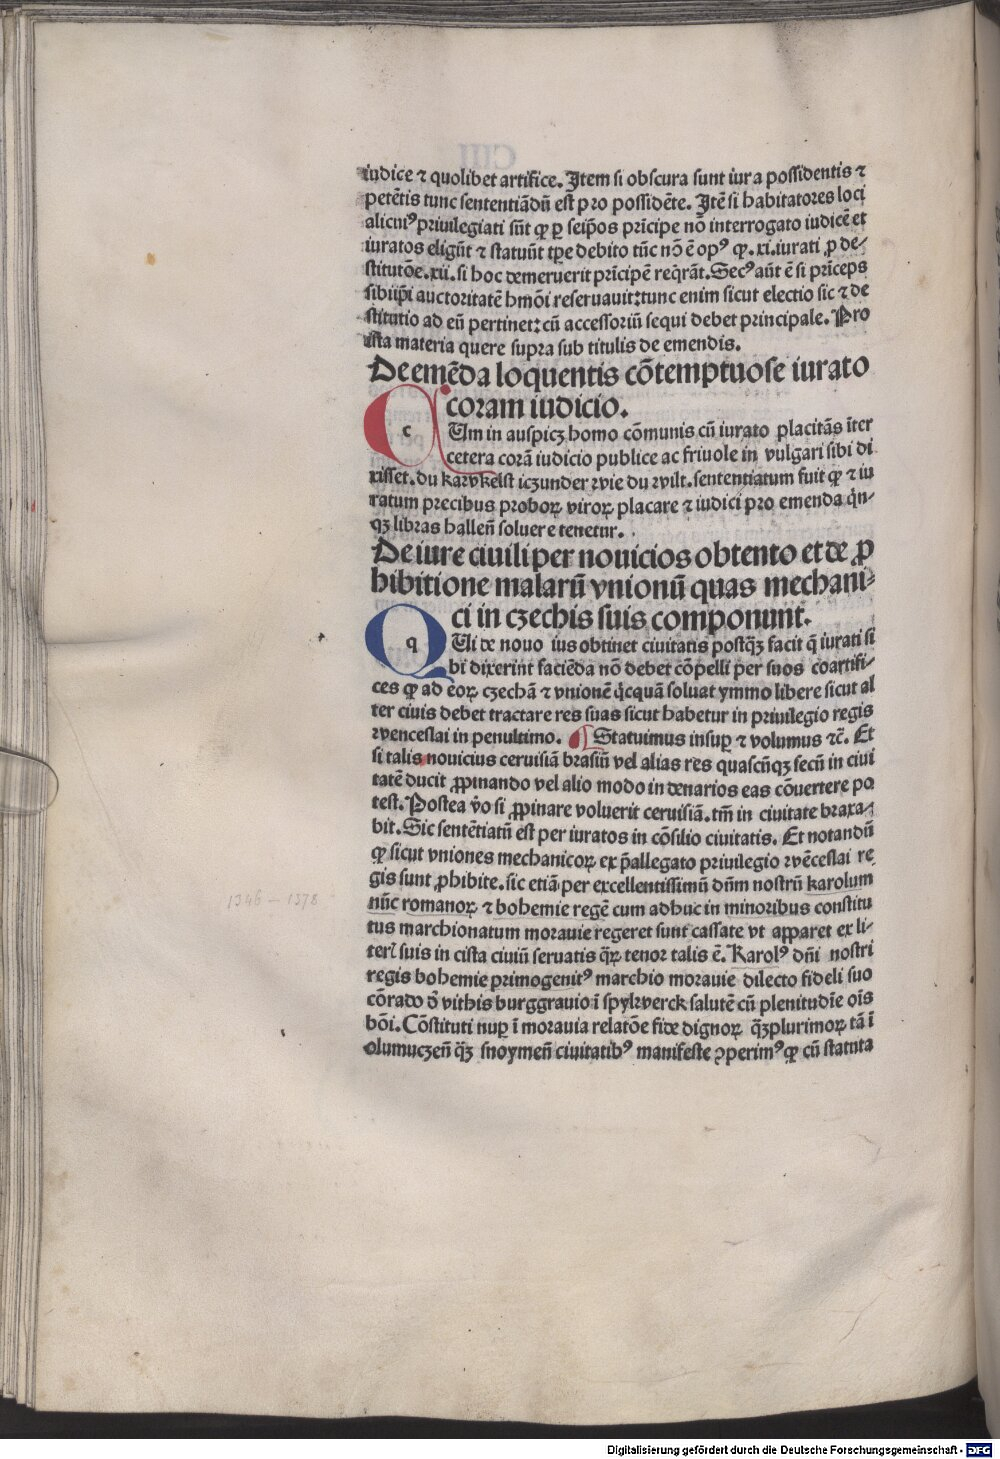 iudice ⁊ quolibet artifice. Item si obscura sunt iura possidentis ⁊
petētis tunc sententiādū est pro possidēte. Itē si habitatores loci
alicuiꝰ priuilegiati sūt ꝙ ꝑ seip̄os prīcipe nō interrogato iudicē et
iuratos eligūt ⁊ statuūt tp̄e debito tūc nō ē opꝰ ꝙ .xi. iurati ꝓ de-
stitutōe .xii. si hoc demeruerit prīcipē reqͥrāt. Secꝰ aūt ē si prīceps
sibiip̄i auctoritatē hmōi reseruauit: tunc enim sicut electio sic ⁊ de
stitutio ad eū pertinet: cū accessoriū sequi debet principale. Pro
ista materia quere supra sub titulis de emendis.
De emēda loquentis cōtemptuose iurato
coram iudicio.
c Um in auspicz homo cōmunis cū iurato placitās īter
cetera corā iudicio publice ac friuole in vulgari sibi di
xisset. du karvkelst iczunder wie du wilt. sententiatum fuit ꝙ ⁊ iu
ratum precibus proboꝝ viroꝝ placare ⁊ iudici pro emenda qͥn-
qꝫ libras hallen̄ soluere tenetur.
De iure ciuili per nouicios obtento et de ꝓ
hibitione malarū vnionū quas mechani-
ci in czechis suis componunt.
q Ui de nouo ius obtinet ciuitatis postqꝫ facit q̄ iurati si
bi dixerint faciēda nō debet cōpelli per suos coartifi-
ces ꝙ ad eoꝝ czechā ⁊ vnionē qͥcquā soluat ymmo libere sicut al
ter ciuis debet tractare res suas sicut habetur in priuilegio regis
wenceslai in penultimo. ¶ Statuimus insuꝑ ⁊ volumus ⁊c̄. Et
si talis nouicius ceruisiā brasiū vel alias res quascūqꝫ secū in ciui
tatē ducit ꝓpinando vel alio modo in denarios eas cōuertere po
test. Postea v̄o si ꝓpinare voluerit ceruisiā. tm̄ in ciuitate braxa-
bit. Sic sentētiatū est per iuratos in cōsilio ciuitatis. Et notandū
ꝙ sicut vniones mechanicoꝝ ex p̄allegato priuilegio wēceslai re
gis sunt ꝓhibite. sic etiā per excellentissimū dn̄m nostrū karolum
nūc romanoꝝ ⁊ bohemie regē cum adhuc in minoribus constitu
tus marchionatum morauie regeret sunt cassate vt apparet ex li-
teris suis in cista ciuiū seruatis qͣꝝ tenor talis ē. Karolꝰ dn̄i nostri
regis bohemie primogenitꝰ marchio morauie dilecto fideli suo
cōrado d̄ vithis burggrauio ī spylwerck salutē cū plenitudīe oīs
bōi. Cōstituti nuꝑ ī morauia relatōe fide dignoꝝ qͣꝫplurimoꝝ tā ī
olumuczen̄ qͣꝫ snoymen̄ ciuitatibꝰ manifeste ꝯperimꝰ ꝙ cū statuta
1346 – 1378
Digitalisierung gefördert durch die Deutsche Forschungsgemeinschaft - DFG